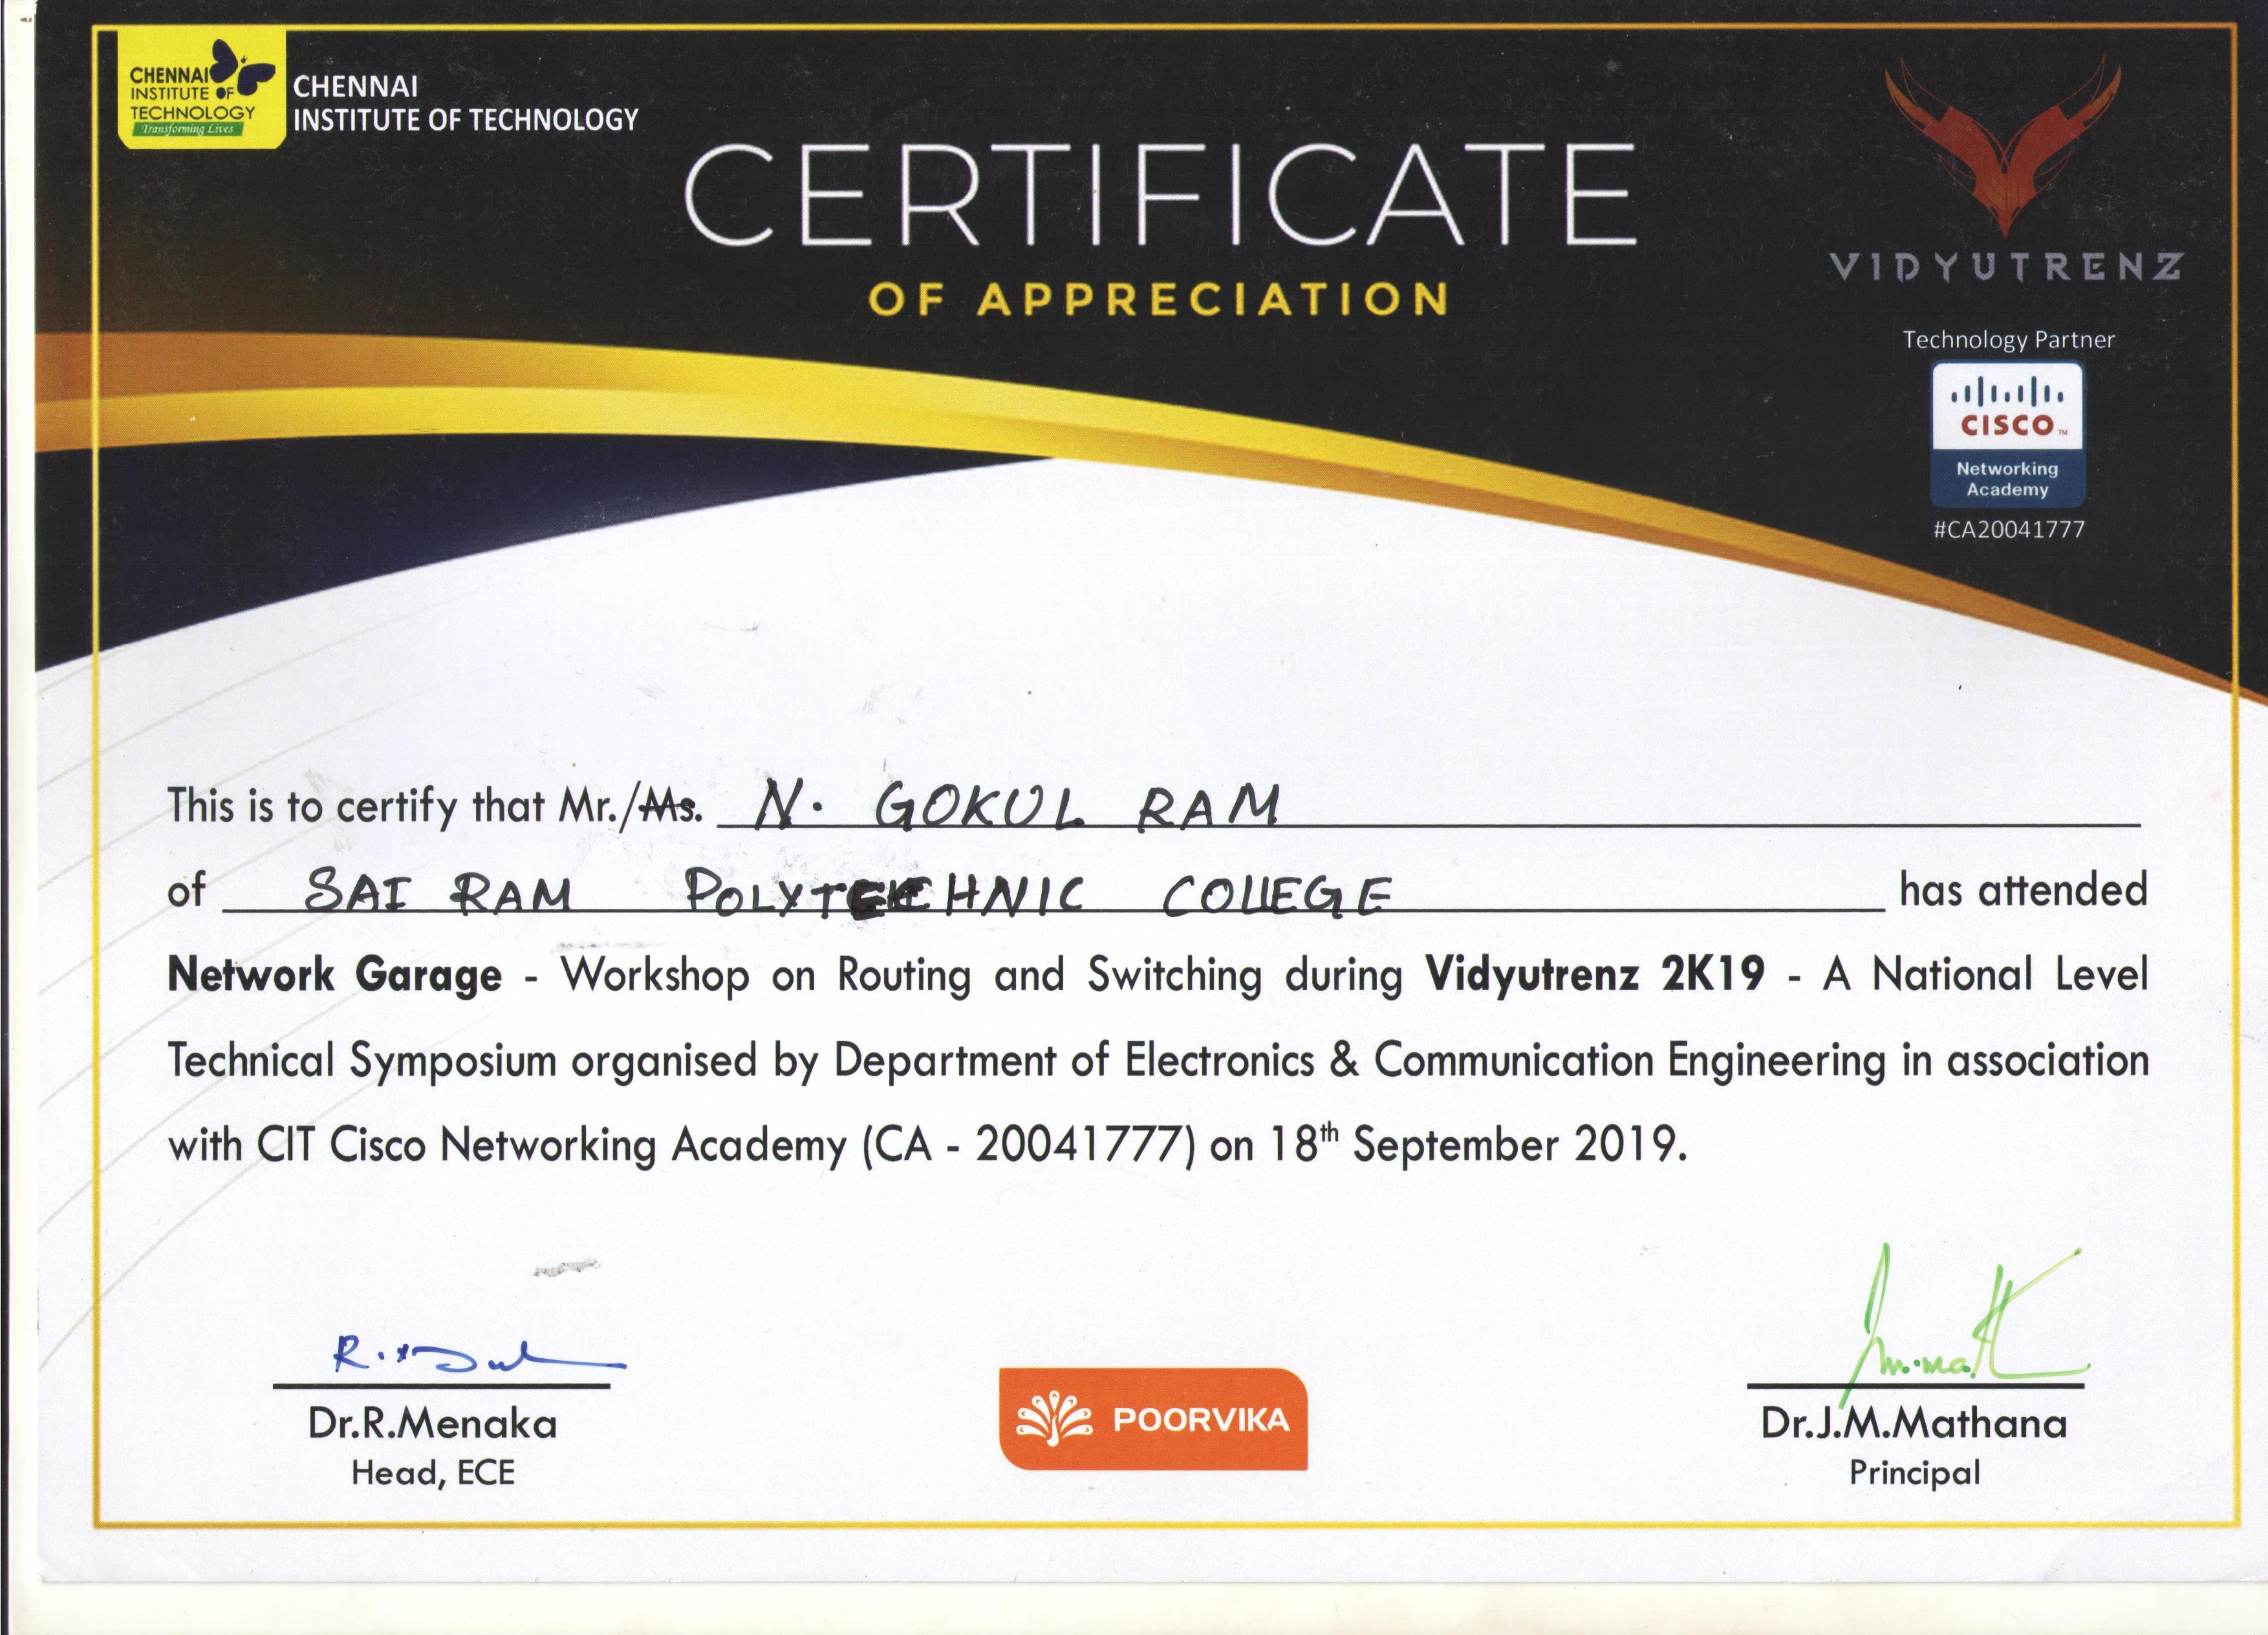 CHENNAI
INSTITUTE OF
TECHNOLOGY
Transforming Lives
CHENNAI
INSTITUTE OF TECHNOLOGY
CERTIFICATE
OF APPRECIATION
VIDYUTRENZ
Technology Partner
CISCO™
Networking
Academy
#CA20041777
This is to certify that Mr./Ms. N. GOKUL RAM
of SAI RAM POLYTECHNIC COLLEGE has attended
Network Garage - Workshop on Routing and Switching during Vidyutrenz 2K19 - A National Level
Technical Symposium organised by Department of Electronics & Communication Engineering in association
with CIT Cisco Networking Academy (CA - 20041777) on 18th September 2019.
Dr.R.Menaka
Head, ECE
POORVIKA
Dr.J.M.Mathana
Principal